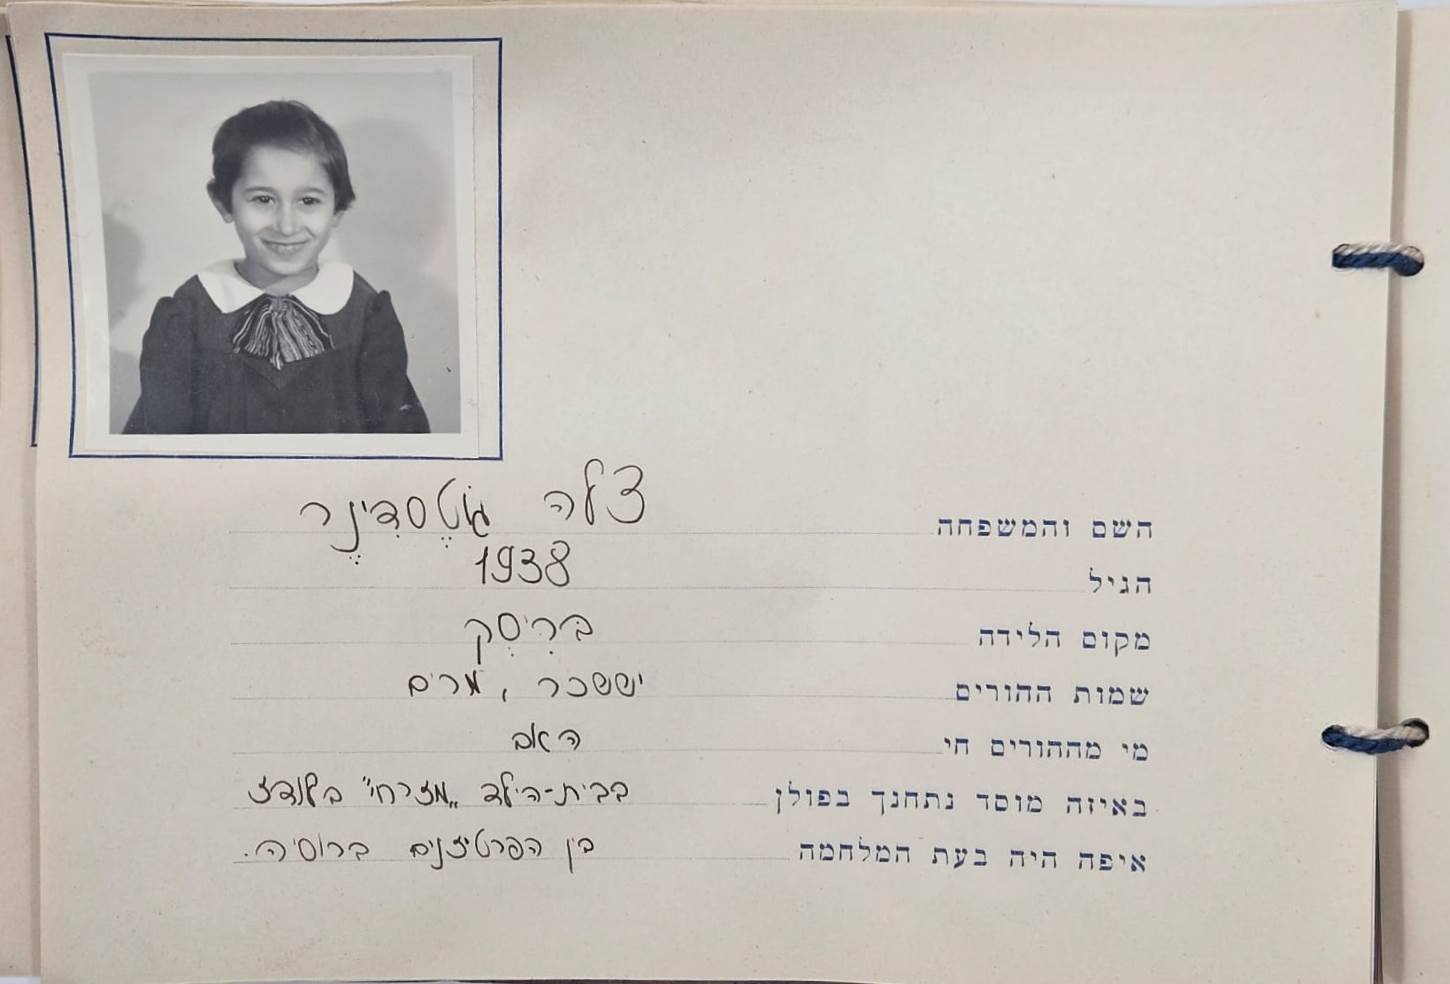 השם והמשפחה צלה גוֹטֶסדִינֶר
הגיל 1938
מקום הלידה בּרִיסְק
שמות ההורים יששכר, מרים
מי מההורים חי האב
באיזה מוסד נתחנך בפולן בבית-הילד „מזרחי" בלודז
איפה היה בעת המלחמה בין הפרטיזנים ברוסיה.